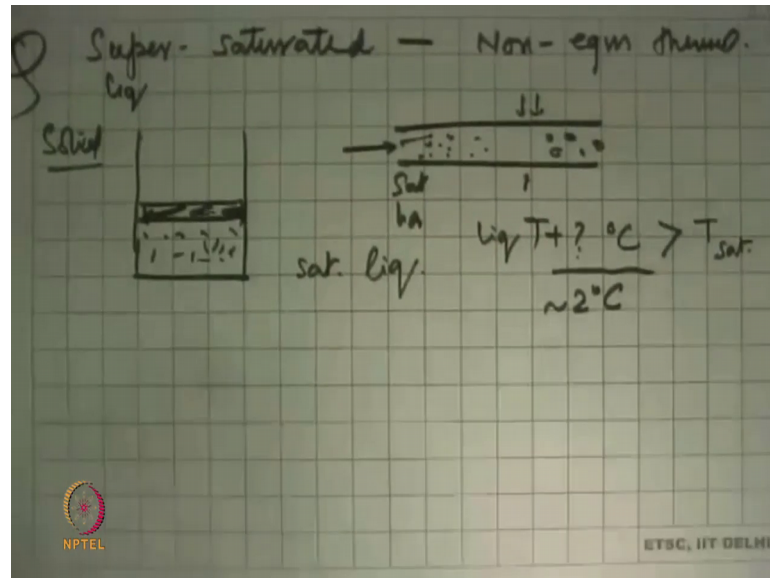 Super- saturated — Non- eqm thermo.
liq
Solid
sat. liq.
Sat
liq T + ? °C > T sat.
~2°C
NPTEL
ETSC, IIT DELHI